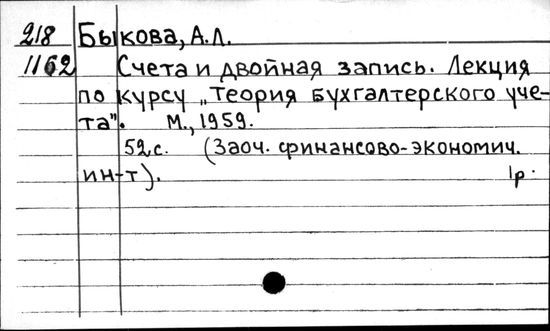 218 Быкова, А.Л.
1162 Счета и двойная запись. Лекция
по курсу „Теория бухгалтерского уче-
та". М., 1959.
52с. (Заоч. финансово-экономич.
ин-т). 1р.